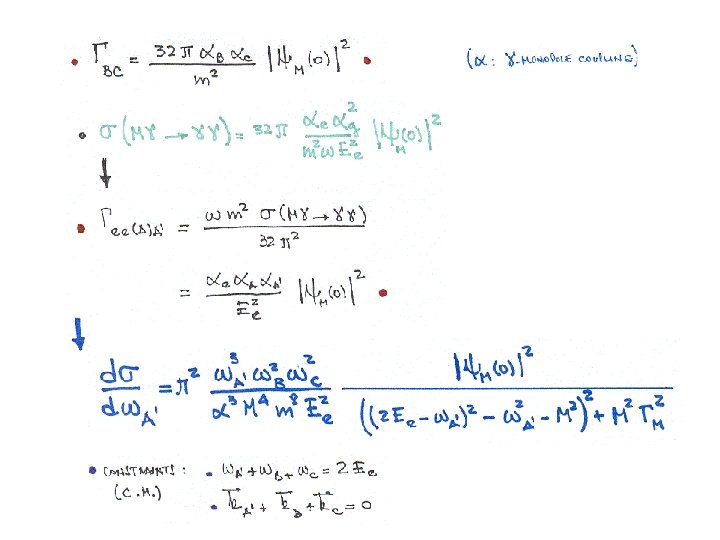 • Γ_BC = 32π α_B α_C / m² |Ψ_M(0)|² • (α : γ-MONOPOLE COUPLING)
• σ(Mγ → γγ) = 32π α_e α_g² / m²ω E_e² |Ψ_M(0)|²
↓
• Γ_ee(A)A' = ω m² σ(Mγ → γγ) / 32π²
= α_e α_A α_A' / E_e² |Ψ_M(0)|² •
↓
dσ/dω_A' = π² ω_A'³ ω_B² ω_C² / α³ M⁴ m⁸ E_e² |Ψ_M(0)|² / ((2E_e − ω_A')² − ω_A'² − M²)² + M² Γ_M²
• CONSTRAINTS : • ω_A' + ω_B + ω_C = 2E_e
(C.M.) • k̄_A' + k̄_B + k̄_C = 0